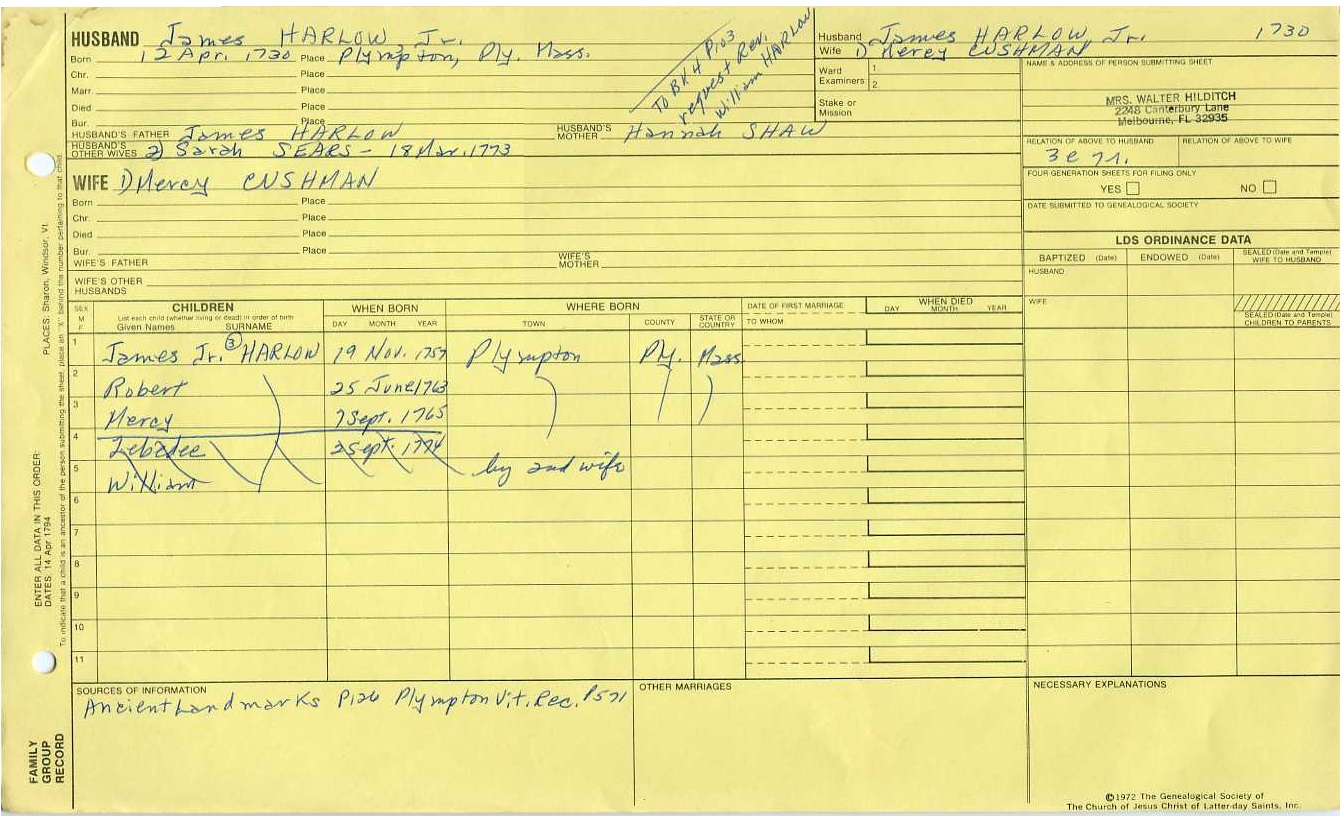 HUSBAND James HARLOW Jr.
Born 12 Apr. 1730 Place Plympton, Ply. Mass.
Chr. Place
Marr. Place
Died Place
Bur. Place
HUSBAND'S FATHER James HARLOW HUSBAND'S MOTHER Hannah SHAW
HUSBAND'S OTHER WIVES 2) Sarah SEARS - 18 Mar. 1773
To BK 4 P103
request Rev.
William HARLOW
Husband James HARLOW, Jr. 1730
Wife 1) Mercy CUSHMAN
Ward 1
Examiners: 2
Stake or
Mission
NAME & ADDRESS OF PERSON SUBMITTING SHEET
MRS. WALTER HILDITCH
2248 Canterbury Lane
Melbourne, FL 32935
RELATION OF ABOVE TO HUSBAND RELATION OF ABOVE TO WIFE
FOUR GENERATION SHEETS FOR FILING ONLY
YES NO
DATE SUBMITTED TO GENEALOGICAL SOCIETY
LDS ORDINANCE DATA
BAPTIZED (Date) ENDOWED (Date) SEALED (Date and Temple) WIFE TO HUSBAND
HUSBAND
WIFE
SEALED (Date and Temple) CHILDREN TO PARENTS
WIFE 1) Mercy CUSHMAN
Born Place
Chr. Place
Died Place
Bur. Place
WIFE'S FATHER WIFE'S MOTHER
WIFE'S OTHER HUSBANDS
SEX M F
CHILDREN WHEN BORN WHERE BORN DATE OF FIRST MARRIAGE WHEN DIED
List each child (whether living or dead) in order of birth
Given Names SURNAME DAY MONTH YEAR TOWN COUNTY STATE OR COUNTRY TO WHOM DAY MONTH YEAR
1 James Jr. (3) HARLOW 19 Nov. 1757 Plympton Ply. Mass.
2 Robert 25 June 1763
3 Mercy 7 Sept. 1765
4 Zebedee 2 Sept. 1774
5 William by 2nd wife
6
7
8
9
10
11
SOURCES OF INFORMATION
Ancient Landmarks P126 Plympton Vit. Rec. P571
OTHER MARRIAGES
NECESSARY EXPLANATIONS
©1972 The Genealogical Society of
The Church of Jesus Christ of Latter-day Saints, Inc.
FAMILY
GROUP
RECORD
ENTER ALL DATA IN THIS ORDER:
DATES: 14 Apr 1794
PLACES: Sharon, Windsor, Vt.
To indicate that a child is an ancestor of the person submitting the sheet, place an "X" behind the number pertaining to that child.